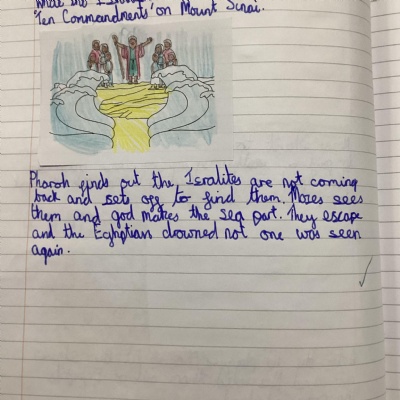 Ten Commandments' on Mount Sinai.
Pharoh finds out the Isralites are not coming
back and sets off to find them. Moses sees
them and god makes the sea part. They escape
and the Eghptian drowned not one was seen
again.